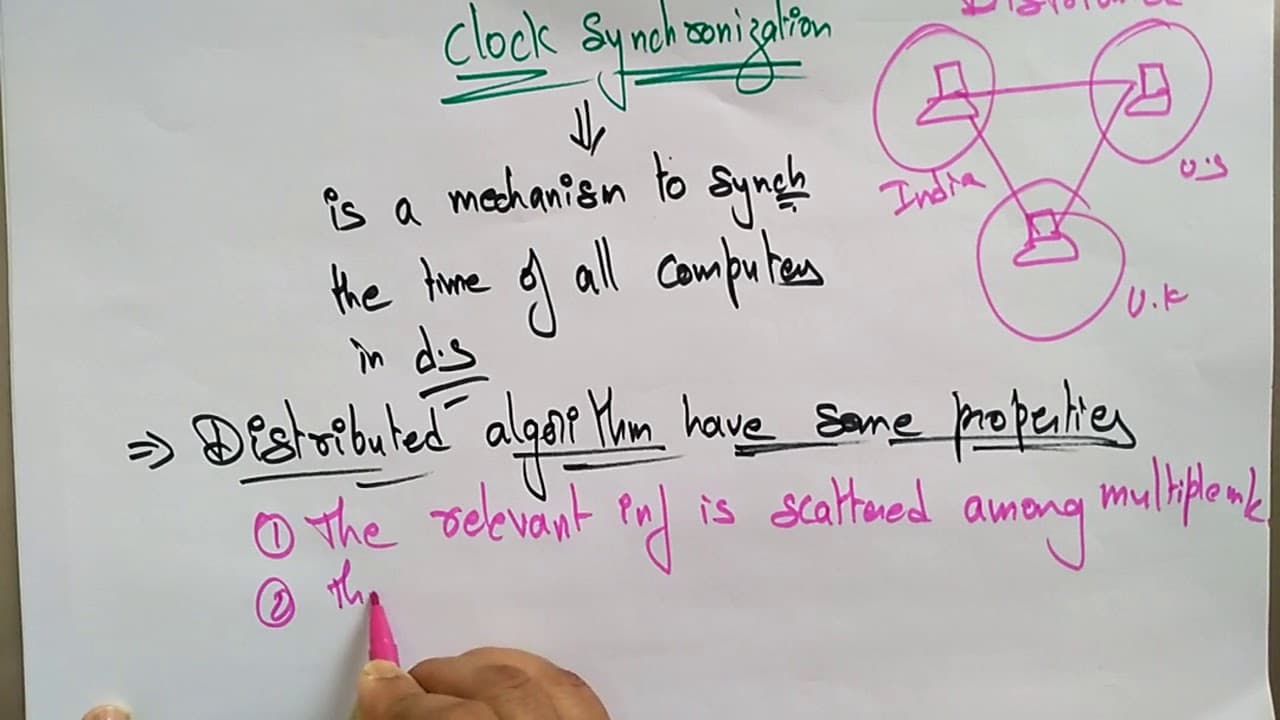 Clock Synchronization
⇓
is a mechanism to synch
the time of all computers
in d.s
⇒ Distributed algorithm have some properties
① The relevant inf is scattered among multiple m/c
② Th
India
U.S
U.K